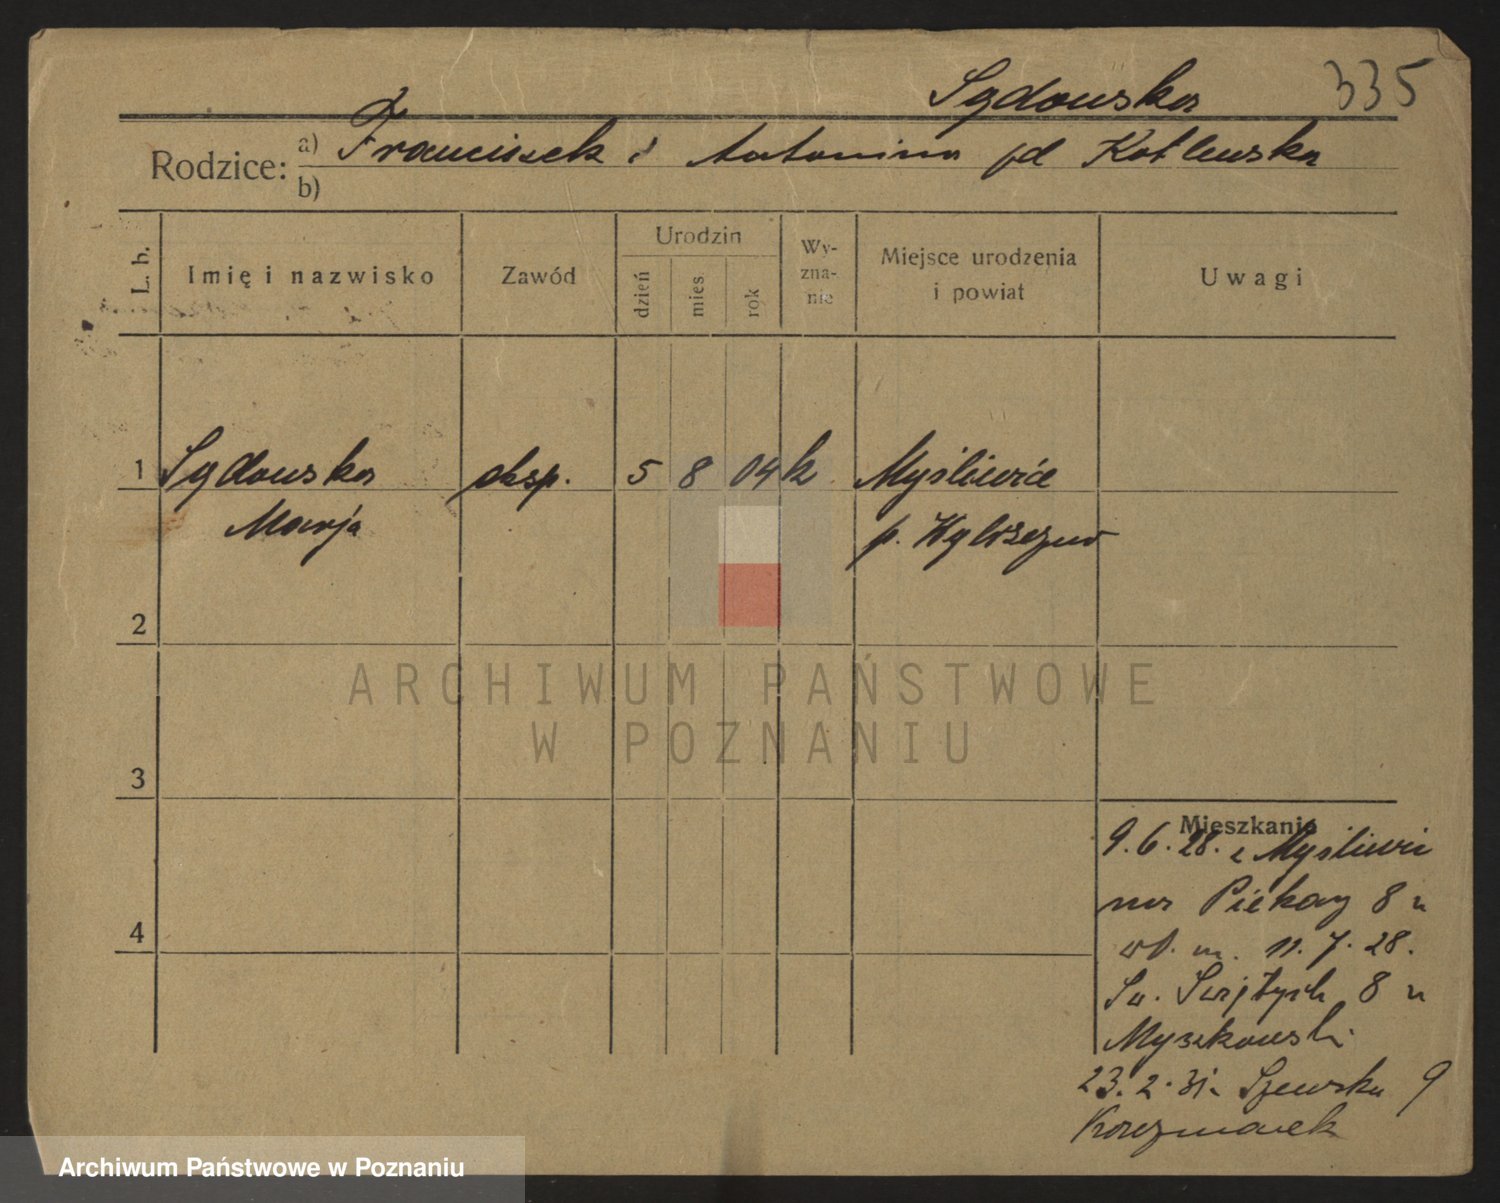 Sądowska 335
Rodzice: a) Franciszek i Antonina pd Kotlewska
b)
L. b. Imię i nazwisko Zawód Urodzin dzień mies rok Wy-zna-nie Miejsce urodzenia i powiat Uwagi
1 Sądowska eksp. 5 8 04 k Myśliwice
Marja p.
2
3
4
Mieszkanie
9.6.28. z Myśliwic
na Piekary 8 u
wł. m. 11.7.28.
Św. 8 u
Myszkowski
23.2.31. Szewska 9
Korczmarek
ARCHIWUM PAŃSTWOWE
W POZNANIU
Archiwum Państwowe w Poznaniu